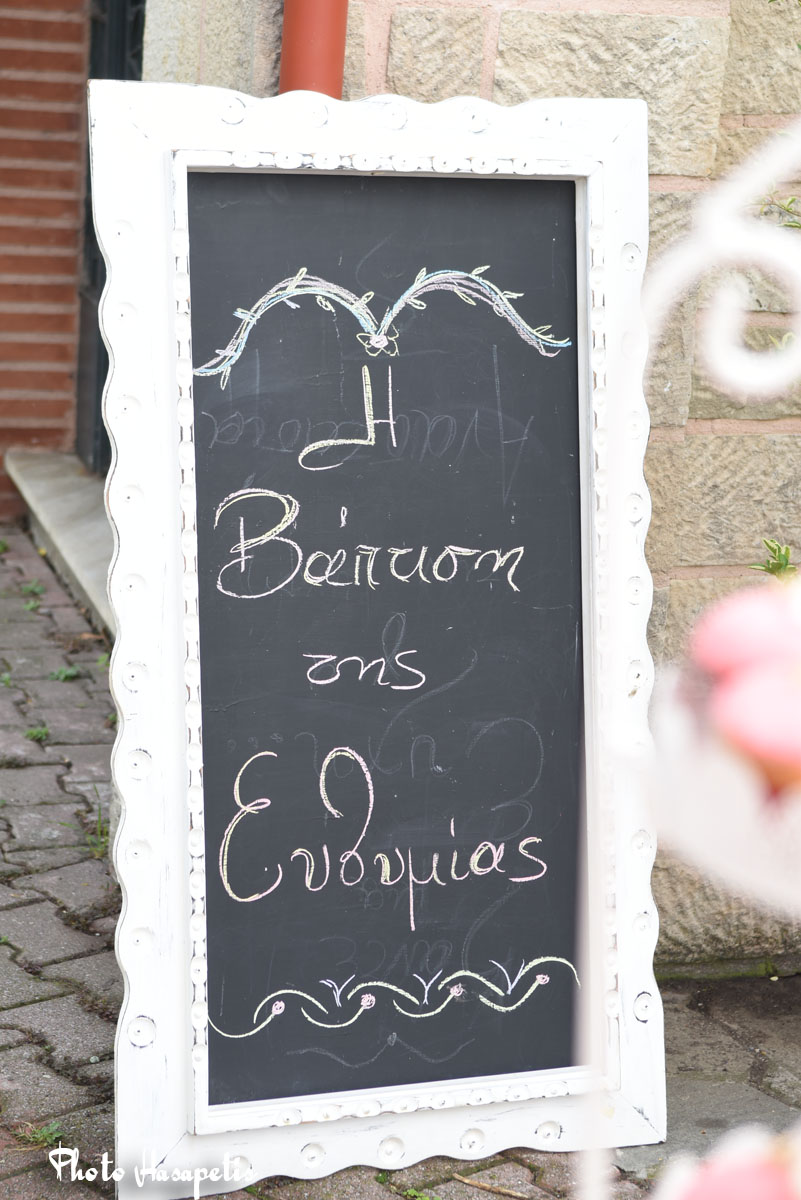 Η
Βάπτιση
της
Ευθυμίας
Photo Hasapetis